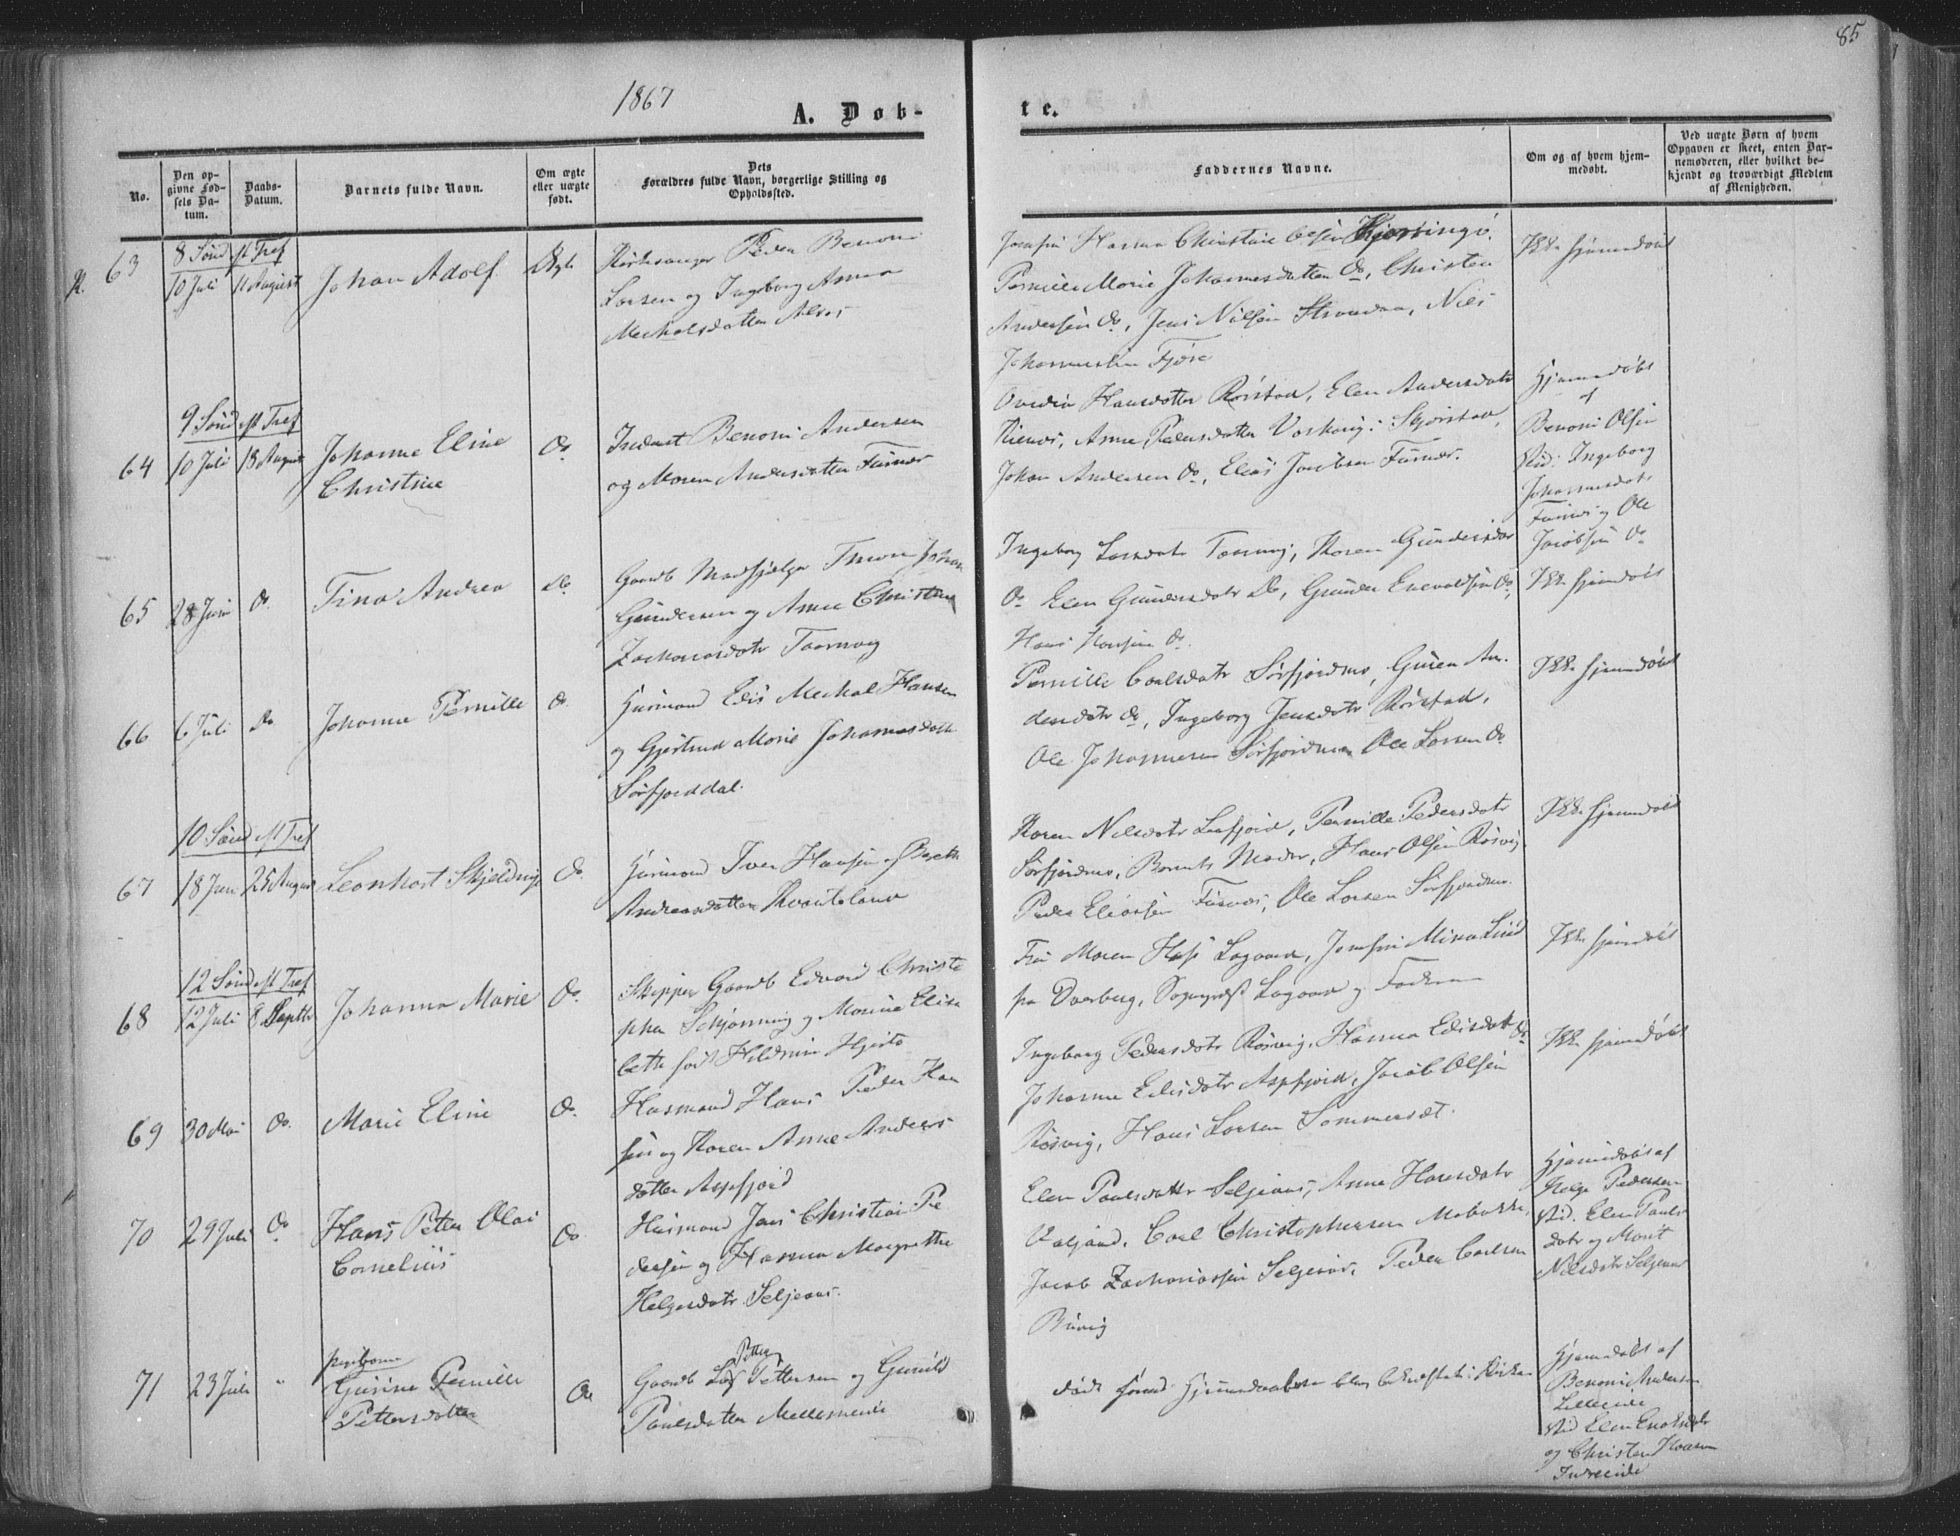 85
1867
A. Døb-
te.
No.
Den op-
givne Fød-
sels Da-
tum.
Daabs-
Datum.
Barnets fulde Navn.
Om ægte
eller uægte
født.
Dets
Forældres fulde Navn, borgerlige Stilling og
Opholdssted.
Faddernes Navne.
Om og af hvem hjem-
medøbt.
Ved uægte Børn af hvem
Opgaven er skeet, enten Bar-
nemoderen, eller hvilket be-
kjendt og troværdigt Medlem
af Menigheden.
8 Sønd eft Tref
63
10 Juli
11 August
Johan Adolf
Ægte
Kirkesanger Peder Benoni
Larsen og Ingeborg Anna
Mechalsdatter
Hanna Christine
Pernille Marie Johannesdatter do, Christen
Andersen do, Jens Nilsen Strandaa, Niels
Johannessen Fjøre
Ikke hjemmedøbt
9 Sønd eft Tref
64
10 Juli
18 August
Johanne Eline
Christine
do
Inderst Benoni Andersen
og Maren Andersdatter Furnæs
Ovedia Hansdatter Rørstad, Elen Andersdatr
Anne Pedersdatter Skjørstad,
Johan Andersen do, Elias Jacobsen Furnæs.
Hjemmedøbt
af
Benoni Olsen
Vid: Ingeborg
Johannesdatr
Furnæs og Ole
Jacobsen do
65
28 Juni
do
Tina Andrea
do
Gaardb Simon Johan
Gundersen og Anne Christine
Zachariasdatr Taarnvig
Ingeborg Larsdatr Taarnvig, Karen Gundersdatr
do Elen Gundersdatr do, Gunder Enevoldsen do,
Hans Hansen do.
Ikke hjemmedøbt
66
6 Juli
do
Johanne Pernille
do
Huusmand Edis Mechal Hansen
og Gjertrud Marie Johannesdatter
Sørfjorddal.
Pernille Carlsdatr Sørfjordmo, Guren An-
dersdatr do, Ingeborg Jensdatr Rørstad,
Ole Johannesen Sørfjordmo Ole Larsen do
Ikke hjemmedøbt
10 Sønd eft Tref
67
18 Juni
25 August
Leonhart Skjeldrup
do
Huusmand Iver Hansen og Bereth
Andreasdatter Kvarteland
Karen Nilsdatr Leirfjord, Pernille Pedersdatr
Sørfjordmo, Barnets Moder, Hans Olsen Røsvig,
Peder Eliassen Furnæs, Ole Larsen Sørfjordmo.
Ikke hjemmedøbt
12 Sønd eft Tref
68
12 Juli
8 Septbr
Johanna Marie
do
Skipper Gaardb Edvard Christo
pher Schjønning og Marine Elisa
beth født Hjertø
Fru Maren Lagaard, Josefine Mina Lind
fra Dverberg, Lagaard og Faderen
Ikke hjemmedøbt
69
30 Mai
do
Marie Eline
do
Huusmand Hans Peder Han
sen og Karen Anne Anders-
datter Aspfjord
Ingeborg Pedersdatr Røsvig, Hanna Edisdatr do
Johanna Edisdatr Aspfjord, Jacob Olsen
Røsvig, Hans Larsen Sommerset.
Ikke hjemmedøbt
70
29 Juli
do
Hans Petter Olai
Cornelius
do
Huusmand Jens Christian Pe
dersen og Hanna Margrethe
Helgesdatr Seljeaas.
Elen Paulsdatter Seljeaas, Anne Hansdatr
Valjord, Carl Christophersen
Jacob Zachariassen Seljeaas, Peder Carlsen
Buvig
Hjemmedøbt af
Helge Pedersen
Vid. Elen Pauls
datr og Marit
Nilsdatr Seljeaas
71
23 Juli
"
Gurine Pernille
Pettersdatter
do
Gaardb Petter Pettersen og Gunild
Paulsdatter Mellemeide
Døde førend Hjemmedaaben blev bekræftet i Kirken
Hjemmedøbt af
Benoni Andersen
Lilleeide
Vid Elen Enoksdatr
og Christen Hansen
Indreeide